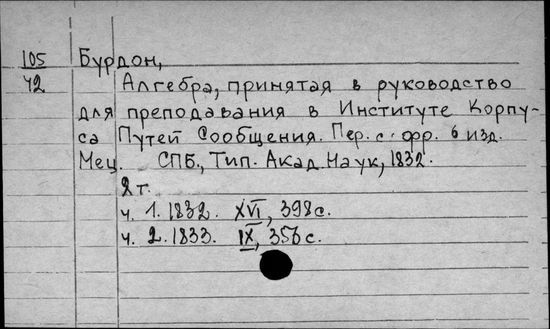 105 Бурдон,
42 Алгебра, принятая в руководство
для преподавания в Институте Корпу-
са Путей Сообщения. Пер. с фр. 6 изд.
Мец. СПБ., Тип. Акад. Наук, 1832.
2 т.
ч. 1. 1832. XVI, 398 с.
ч. 2. 1833. IX, 356 с.